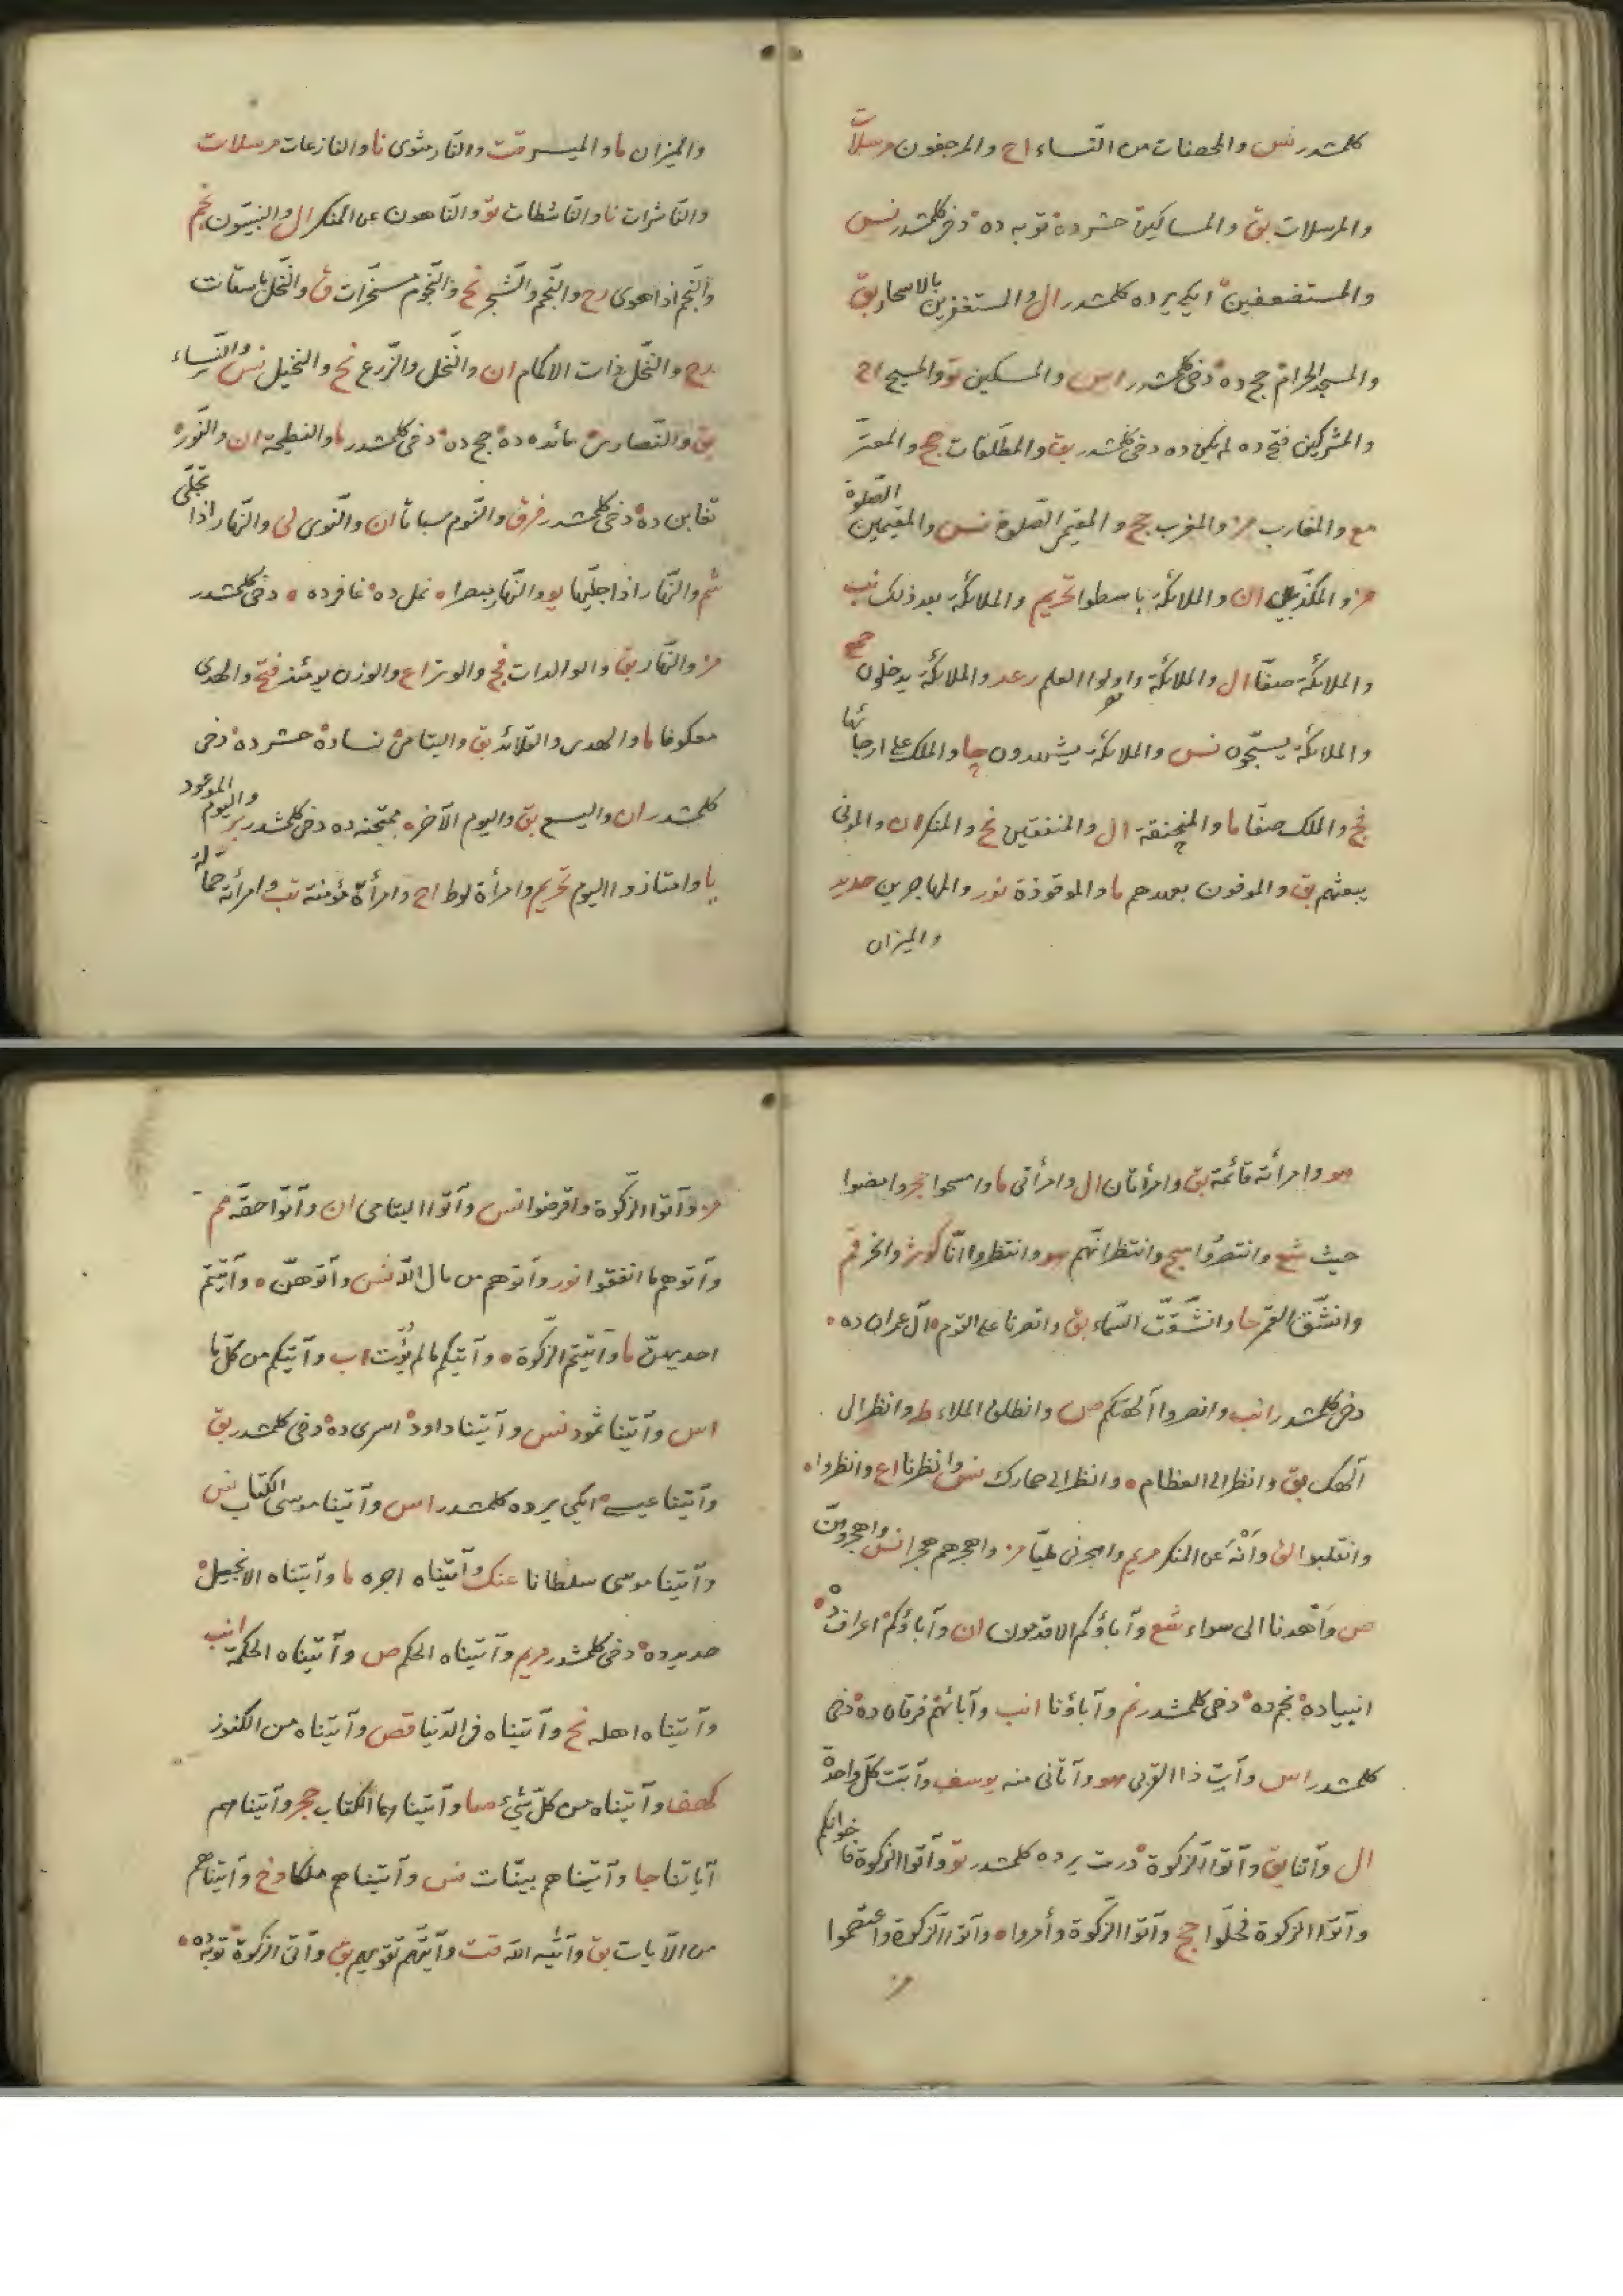 كلمشدر نس والمحصنات من النساء اح والمرجفون مرسلات
والمرسلات بق والمساكين حشرده توبه ده دخی كلمشدر نس
والمستضعفين ایکی یرده كلمشدر ال والمستغفرين بالاسحار بق
والمسجد الحرام حج ده دخی كلمشدر اس والمسكين تو والمسيح اح
والمشركين فتح ده لم يكن ده دخی كلمشدر بق والمطلقات حج والمعتر
مع والمغارب مز والمغرب حج والمقيمي الصلوة نس والمقيمين الصلوة
مز والمكذبين ان والملائكة باسطوا تحريم والملائكة بعد ذلك نب
والملائكة صفا ال والملائكة واولوا العلم رعد والملائكة يدخلون حمع
والملائكة يسبحون نس والملائكة يشهدون حا والملك على ارجائها
فج والملك صفا ما والمنخنقة ال والمنفقين نح والمنكر ان والموتى
يبعثهم بق والموفون بعهدهم ما والموقوذة نور والمهاجرين حديد
والميزان
والميزان ما والميسر قت والنار مثوى نا والنازعات مرسلات
والناشرات نا والناشطات تو والناهون عن المنكر ال والنبيون نجم
والنجم اذا هوى رح والنجم والشجر نح والنجوم مسخرات ق والنخل باسقات
رح والنخل ذات الاكمام ان والنخل والزرع نح والنخيل نس والنساء
بق والنصارى مائده ده حج ده دخی كلمشدر ما والنطيحة ان والنور
تغابن ده دخی كلمشدر فرق والنوم سباتا ان والنوى لى والنهار اذا تجلى
شم والنهار اذا جليها یو والنهار مبصرا نمل ده غافرده دخی كلمشدر
مز والنهار بق والوالدات فج والوتر اع والوزن يومئذ فتح والهدى
معكوفا ما والهدى والقلائد بق واليتامى نساده حشر ده دخی
كلمشدر ان واليسع بق واليوم الآخر ممتحنه ده دخی كلمشدر بر واليوم الموعود
يا وامتازوا اليوم تحريم وامرأة لوط اح وامرأة مؤمنة تب وامرأته حمالة
هو وامرأته قائمة بق وامرأتان ال وامرأتى ما وامسحوا حجر وامضوا
حيث شع وانتصروا سج وانتظر انهم هو وانتظروا انا كوثر وانحر قم
وانشق القمر حا وانشقت السماء بق وانصرنا على القوم آل عمران ده
دخی كلمشدر انب وانصروا آلهتكم ص وانطلق الملاء طه وانظر الى
آلهك بق وانظر الى العظام وانظر الى حمارك نس وانظرنا اع وانظروا
وانقلبوا لق وانه عن المنكر مريم واهجرنى مليا مز واهجرهم هجرا نس واهجروهن
ص واهدنا الى سواء شع وآباؤكم الاقدمون ان وآباؤكم اعراف ده
انبيا ده نجم ده دخی كلمشدر نم وآباؤنا انب وآبائهم فرقان ده دخی
كلمشدر اس وآت ذا القربى هو وآتانى منه يوسف وآتت كل واحدة
ال وآتنا بق وآتوا الزكوة درت يرده كلمشدر تو وآتوا الزكوة فاخوانكم
وآتوا الزكوة فخلوا حج وآتوا الزكوة وأمروا وآتوا الزكوة واعتصموا
مز
مز وآتوا الزكوة واقرضوا نس وآتوا اليتامى ان وآتوا حقه مم
وآتوهم ما انفقوا نور وآتوهم من مال الله نس وآتوهن وآتيتم
احديهن ما وآتيتم الزكوة وآتيكم ما لم يؤت اب وآتيكم من كل ما
اس وآتينا ثمود نس وآتينا داود اسرى ده دخی كلمشدر بق
وآتينا عيسى ایکی يرده كلمشدر اس وآتينا موسى الكتاب نس
وآتينا موسى سلطانا عنك وآتيناه اجره ما وآتيناه الانجيل
حديد ده دخی كلمشدر مريم وآتيناه الحكم ص وآتيناه الحكمة انب
وآتيناه اهله نح وآتيناه فى الدنيا قص وآتيناه من الكنوز
كهف وآتيناه من كل شيء صا وآتيناهما الكتاب حجر وآتيناهم
آياتنا جا وآتيناهم بينات نس وآتيناهم ملكا دخ وآتيناهم
من الآيات بق وآتيه الله قت وآتيهم تقويهم بق وآتى الزكوة توبه ده